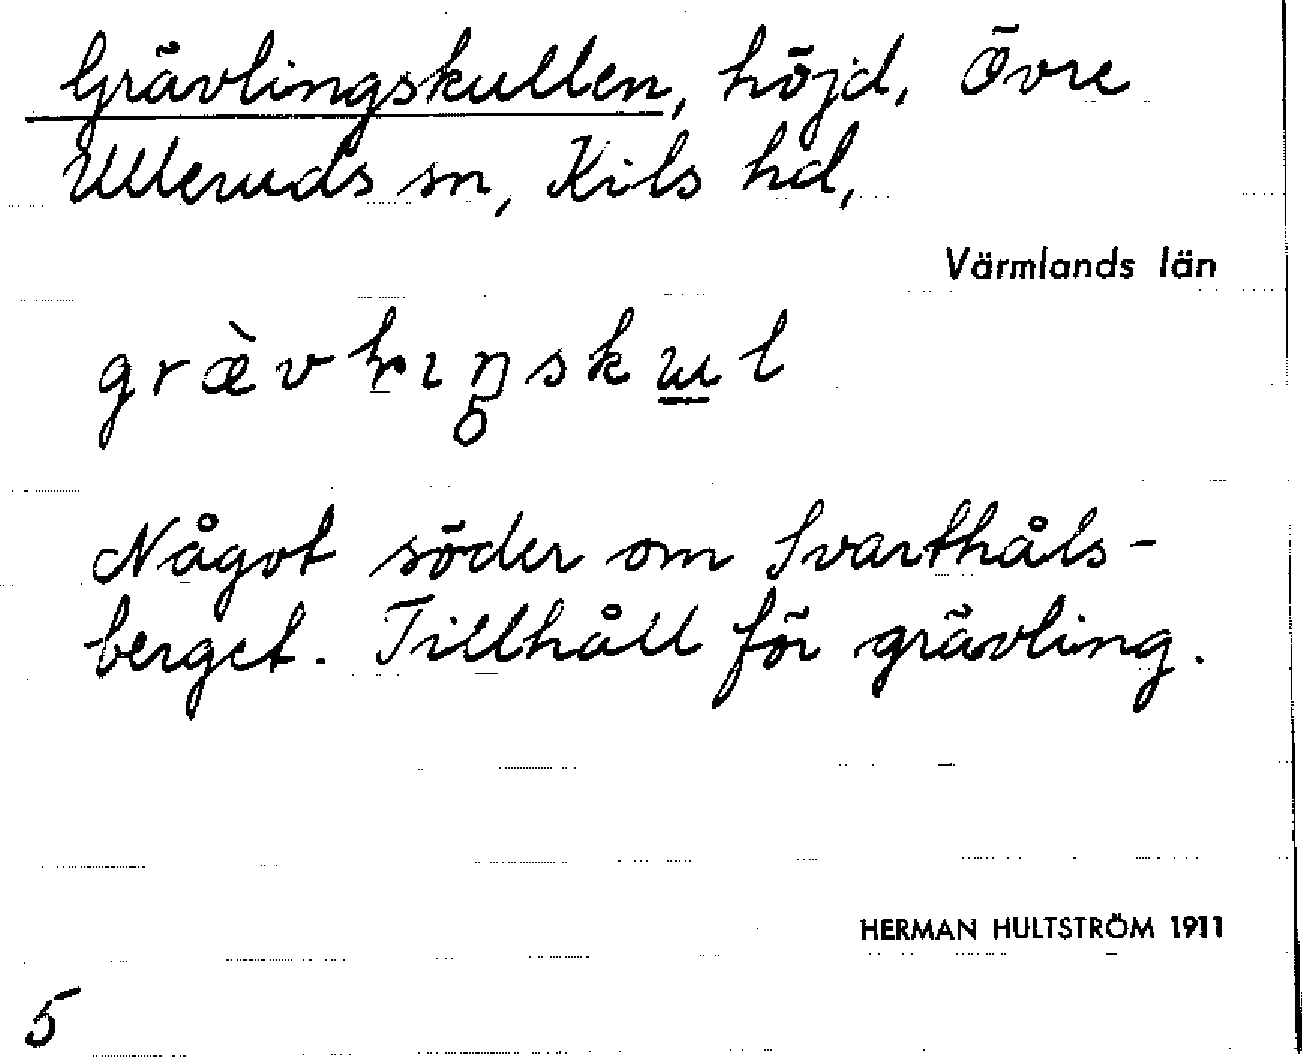 Grävlingskullen, höjd, Övre
Ulleruds sn, Kils hd,
Värmlands län
Något söder om Svarthåls-
berget. Tillhåll för grävling.
HERMAN HULTSTRÖM 1911
5